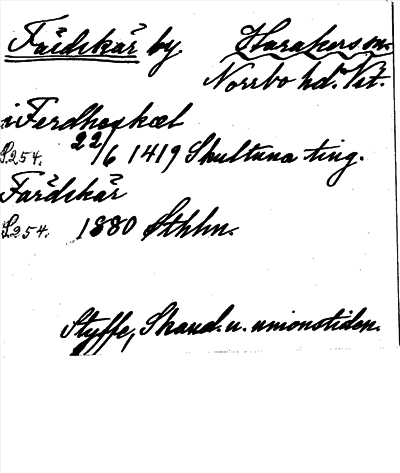 Färdskär by. Harakers sn.
Norrbo hd. Vst.
i Ferdheskæl
S. 254. 22/6 1419 Skultuna ting.
Färdskär
S. 254. 1880 Sthlm.
Styffe, Skand. u. unionstiden.